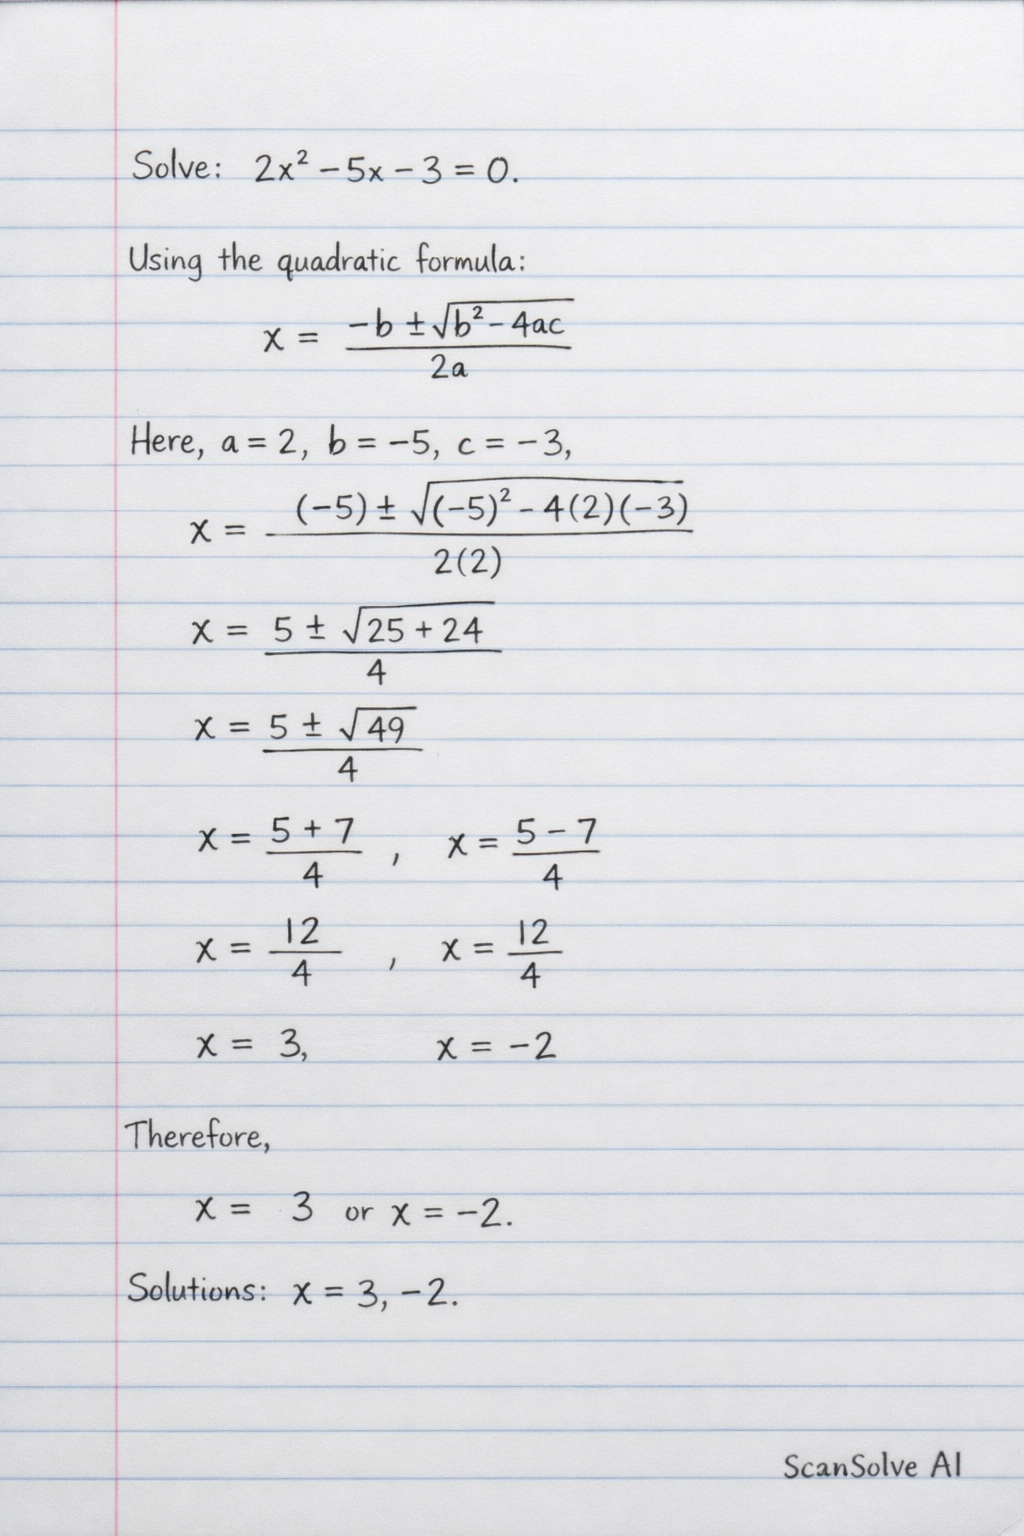 Solve: 2x² − 5x − 3 = 0.
Using the quadratic formula:
x = (−b ± √(b² − 4ac)) / 2a
Here, a = 2, b = −5, c = −3,
x = ((−5) ± √((−5)² − 4(2)(−3))) / 2(2)
x = (5 ± √(25 + 24)) / 4
x = (5 ± √49) / 4
x = (5 + 7) / 4 , x = (5 − 7) / 4
x = 12 / 4 , x = 12 / 4
x = 3, x = −2
Therefore,
x = 3 or x = −2.
Solutions: x = 3, −2.
ScanSolve AI